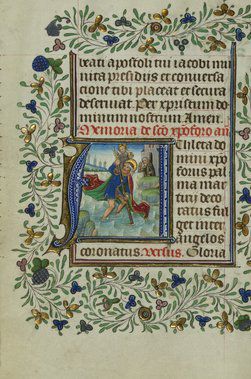 beati apostoli tui iacobi mu
nita presidijs et conuersa
tione tibi placeat et secura
deseruiat. Per xpristum do
minum nostrum. Amen.
Memoria de sco xpoforo an
thleta do
mini xp
oforus pal
ma mar
tirij deco
ratus ful
get inter
angelos
coronatus. versus. Gloria